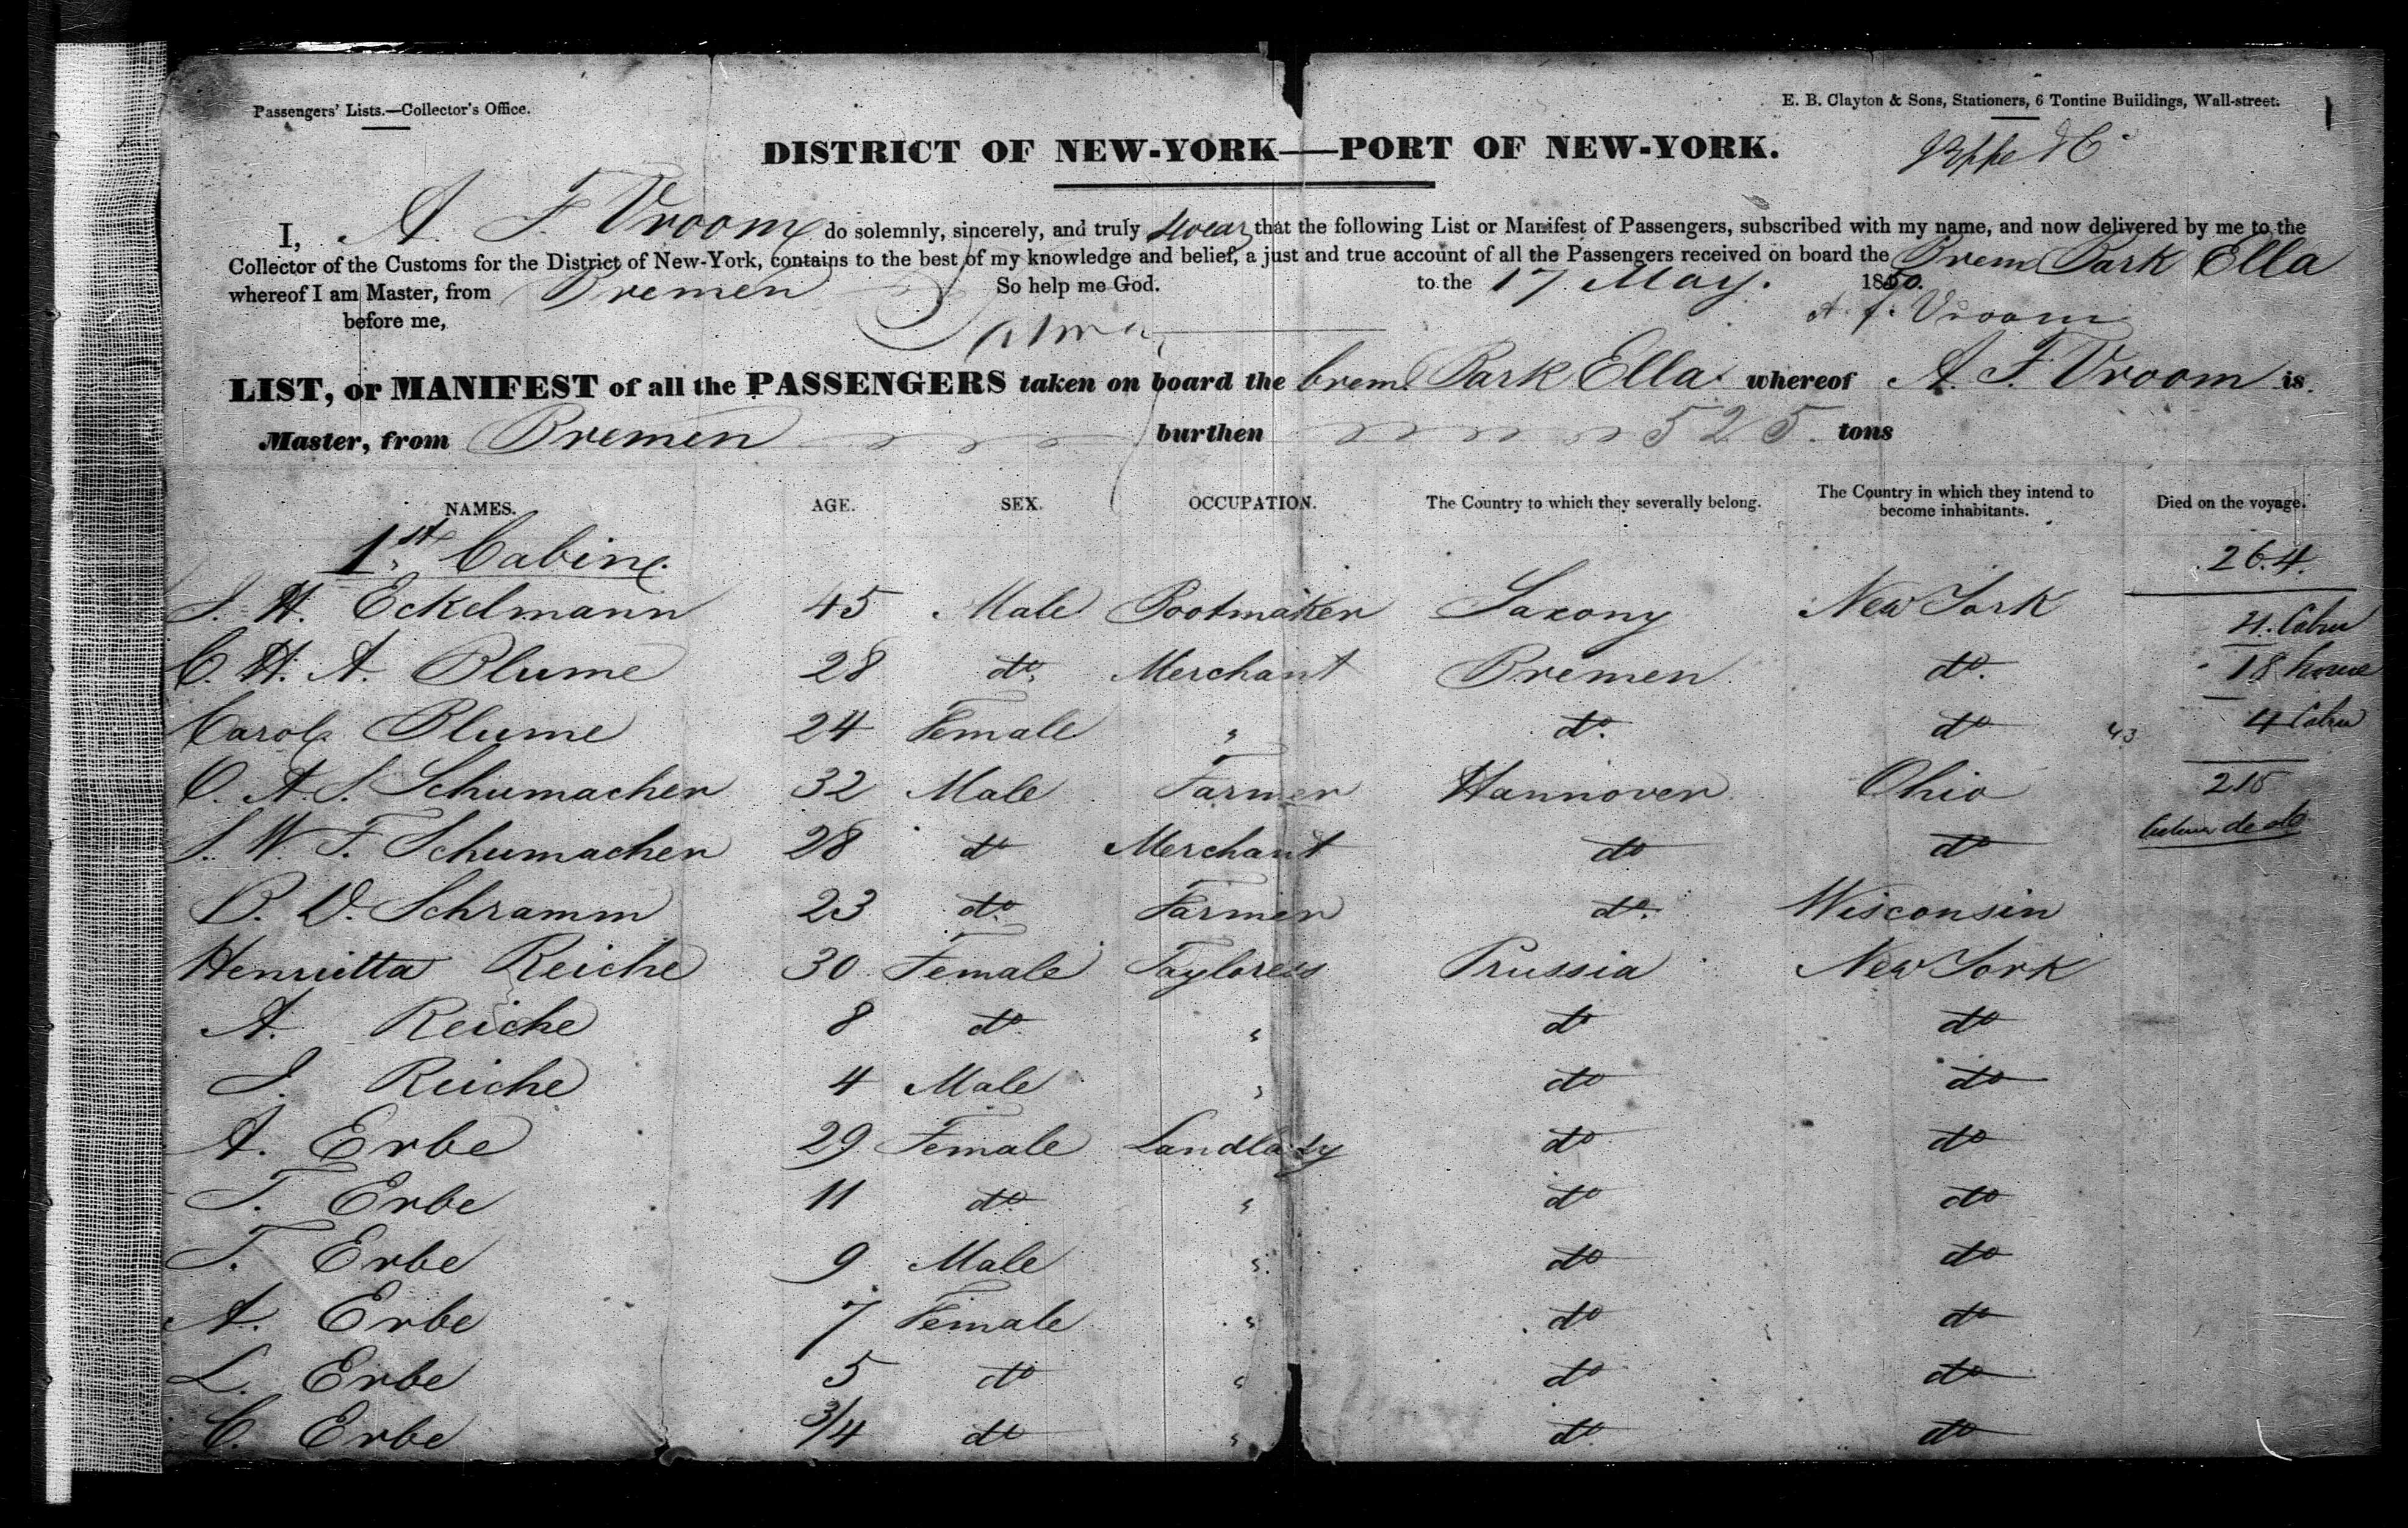 Passengers' Lists.—Collector's Office.
E. B. Clayton & Sons, Stationers, 6 Tontine Buildings, Wall-street.
DISTRICT OF NEW-YORK—PORT OF NEW-YORK.
I, A. F. Vroom do solemnly, sincerely, and truly swear that the following List or Manifest of Passengers, subscribed with my name, and now delivered by me to the
Collector of the Customs for the District of New-York, contains to the best of my knowledge and belief, a just and true account of all the Passengers received on board the Brem Bark Ella
whereof I am Master, from Bremen So help me God. to the 17 May. 1850.
before me, A. F. Vroom
LIST, or MANIFEST of all the PASSENGERS taken on board the brem. Bark Ella whereof A. F. Vroom is
Master, from Bremen burthen 525 tons
NAMES. AGE. SEX. OCCUPATION. The Country to which they severally belong. The Country in which they intend to become inhabitants. Died on the voyage.
1st Cabin. 264.
J. H. Eckelmann 45 Male Bootmaker Saxony New York
C. H. A. Blume 28 do. Merchant Bremen. do. 18
Carol Blume 24 Female " do. do 4
C. A. J. Schumacher 32 Male Farmer Hannover Ohio 215
J. W. F. Schumacher 28 do Merchant do do
B. D. Schramm 23 do. Farmer do. Wisconsin
Henrietta Reiche 30 Female Tayloress Prussia New York
A. Reiche 8 do " do do
J. Reiche 4 Male " do do
A. Erbe 29 Female Landlady do do
T. Erbe 11 do " do do
T. Erbe 9 Male " do do
A. Erbe 7 Female " do do
L. Erbe 5 do " do do
C. Erbe 3/4 do " do do